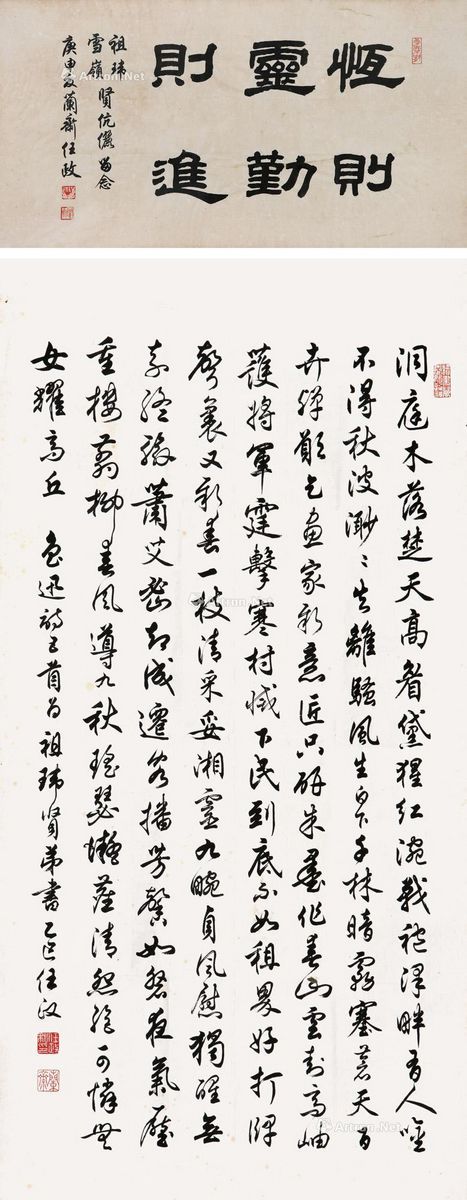 恆則
靈勤
則進
祖瑋
雪嶺 賢伉儷留念
庚申夏蘭齋任政
洞庭木落楚天高眉黛猩紅涴戰袍澤畔有人吟
不得秋波渺〻失離騷風生白下千林暗霧塞蒼天百
卉殫願乞畫家新意匠只研朱墨作春山雲封高岫
護將軍霆擊寒村滅下民到底不如租界好打牌
聲裏又新春一枝清采妥湘靈九畹貞風慰獨醒無
奈終輸蕭艾密却成遷客播芳馨如磐夜氣壓
重樓剪柳春風導九秋瑤瑟凝塵清怨絕可憐無
女耀高丘 魯迅詩五首為祖瑋賢弟書 乙巳任政
Artron.Net